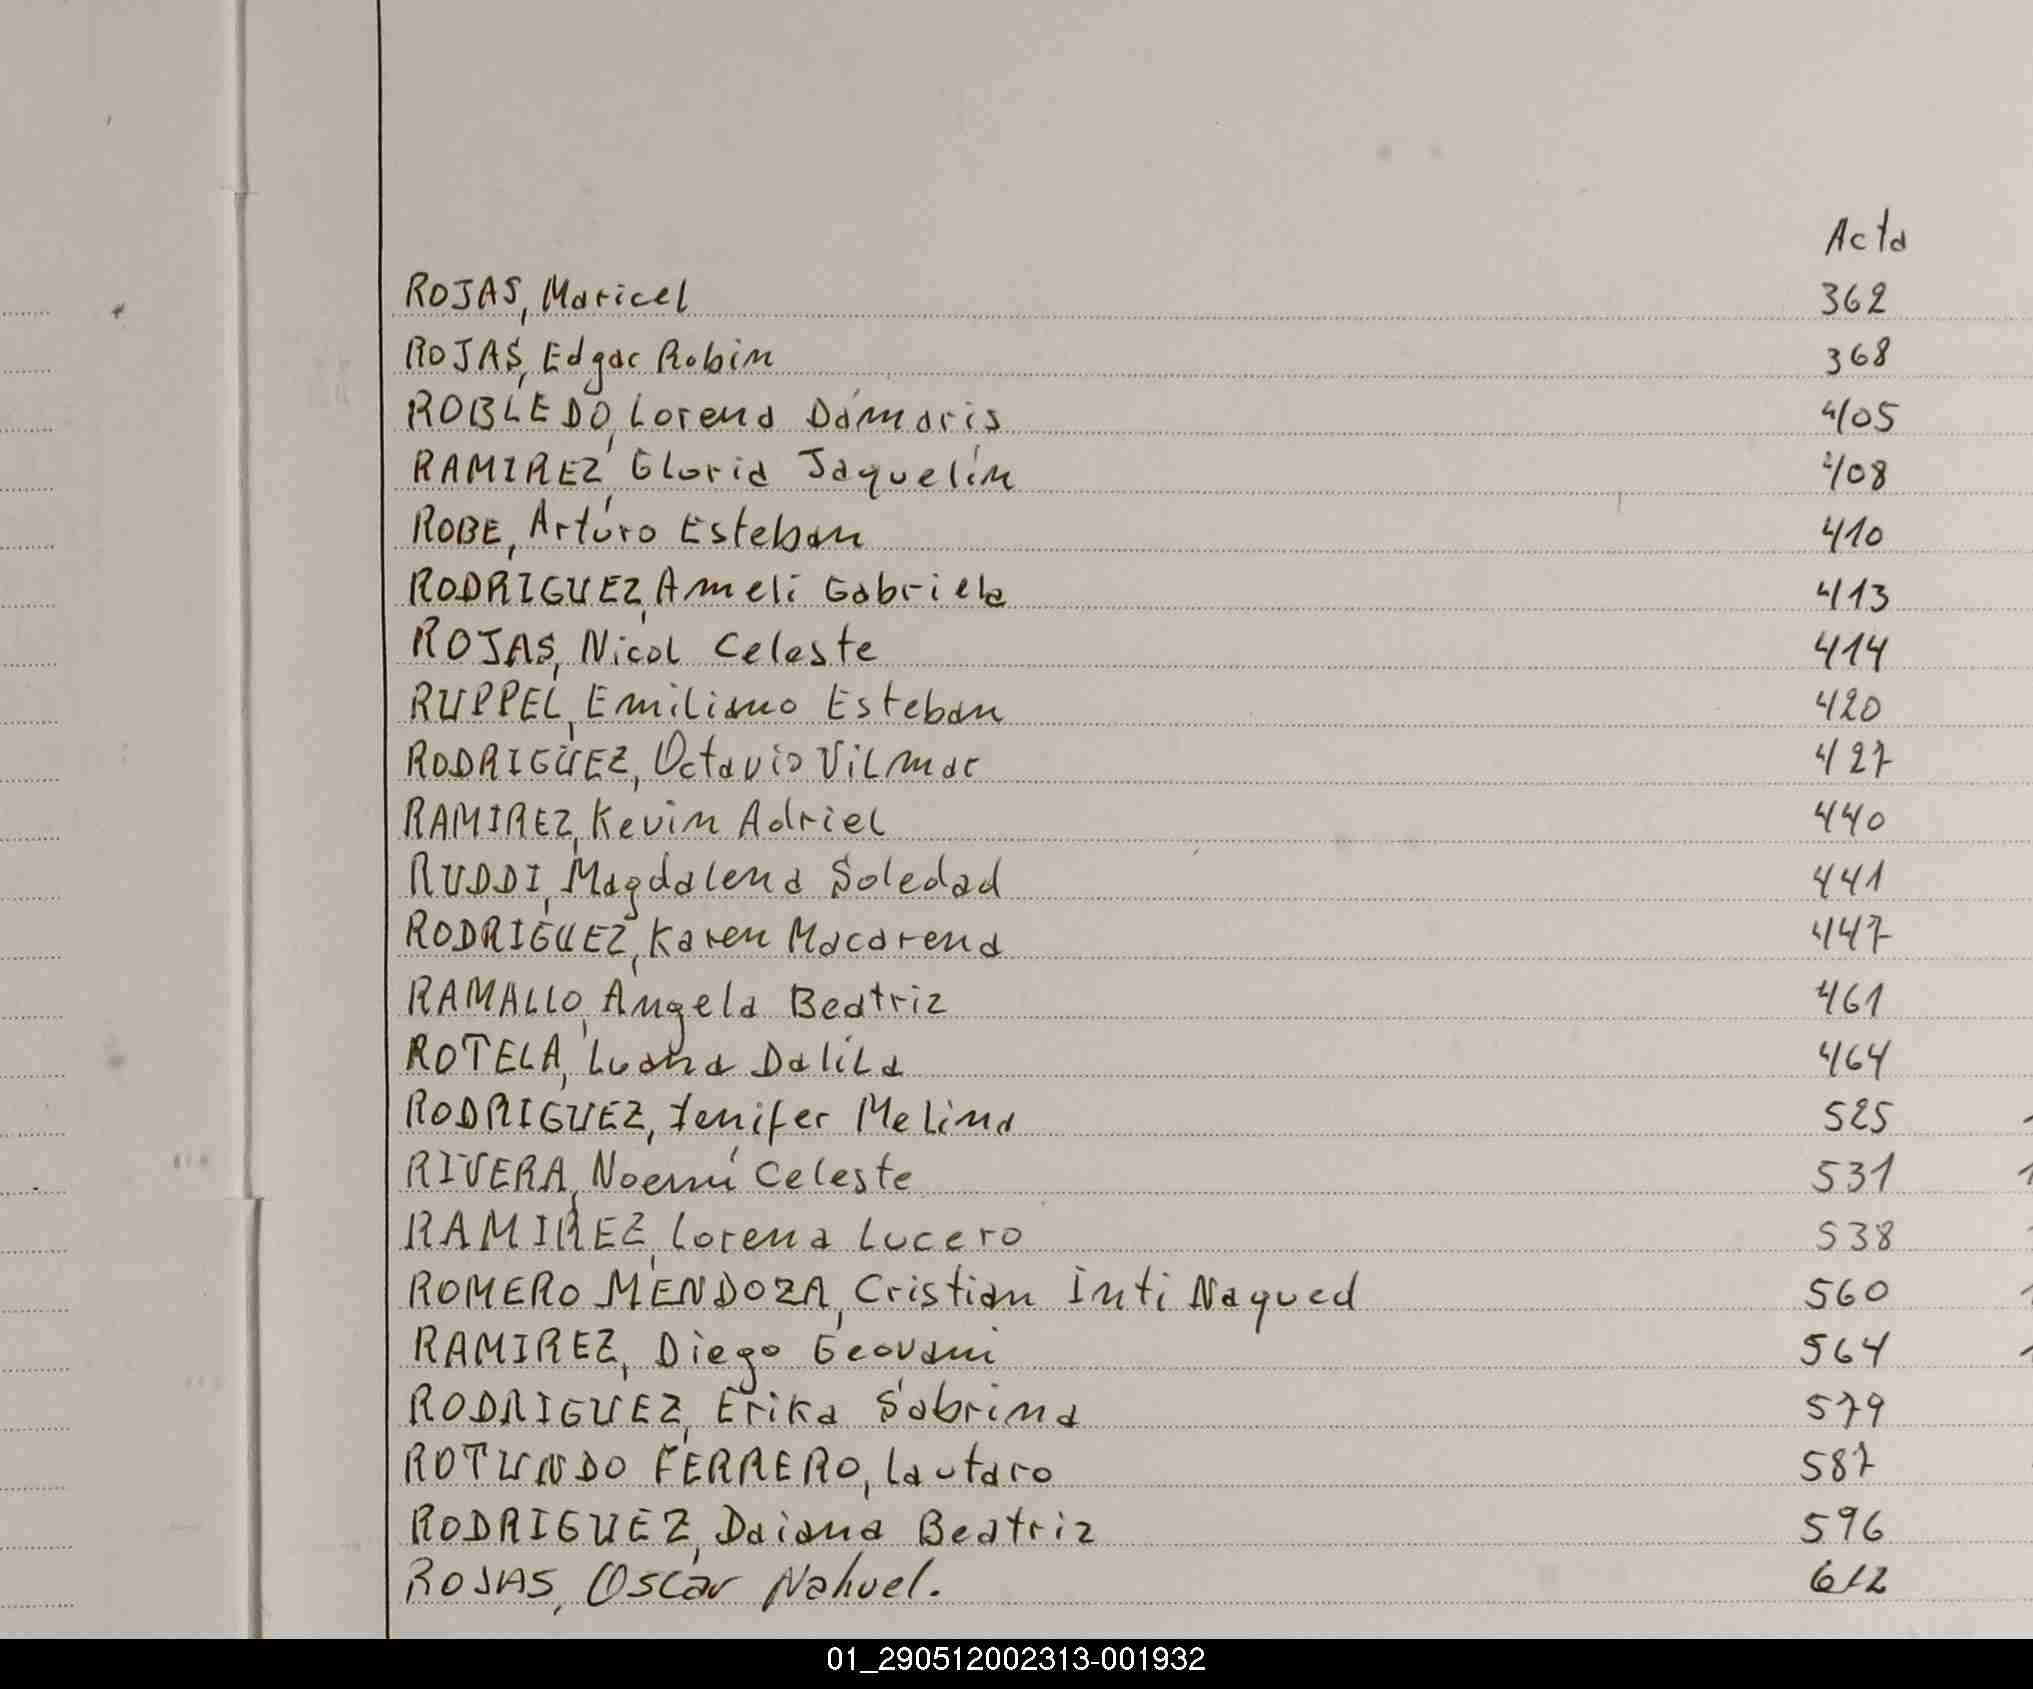 Acta
ROJAS, Maricel 362
ROJAS, Edgar Robin 368
ROBLEDO, Lorena Dámaris 405
RAMIREZ, Gloria Jaquelín 408
ROBE, Arturo Esteban 410
RODRIGUEZ, Ameli Gabriela 413
ROJAS, Nicol Celeste 414
RUPPEL, Emiliano Esteban 420
RODRIGUEZ, Octavio Vilmar 427
RAMIREZ, Kevin Adriel 440
RUDDI, Magdalena Soledad 441
RODRIGUEZ, Karen Macarena 447
RAMALLO, Angela Beatriz 461
ROTELA, Luana Dalila 464
RODRIGUEZ, Yenifer Melina 525
RIVERA, Noemí Celeste 531
RAMIREZ, Lorena Lucero 538
ROMERO MENDOZA, Cristian Inti Naqued 560
RAMIREZ, Diego Geovani 564
RODRIGUEZ, Erika Sabrina 579
ROTUNDO FERRERO, Lautaro 587
RODRIGUEZ, Daiana Beatriz 596
ROJAS, Oscar Nahuel. 612
01_290512002313-001932